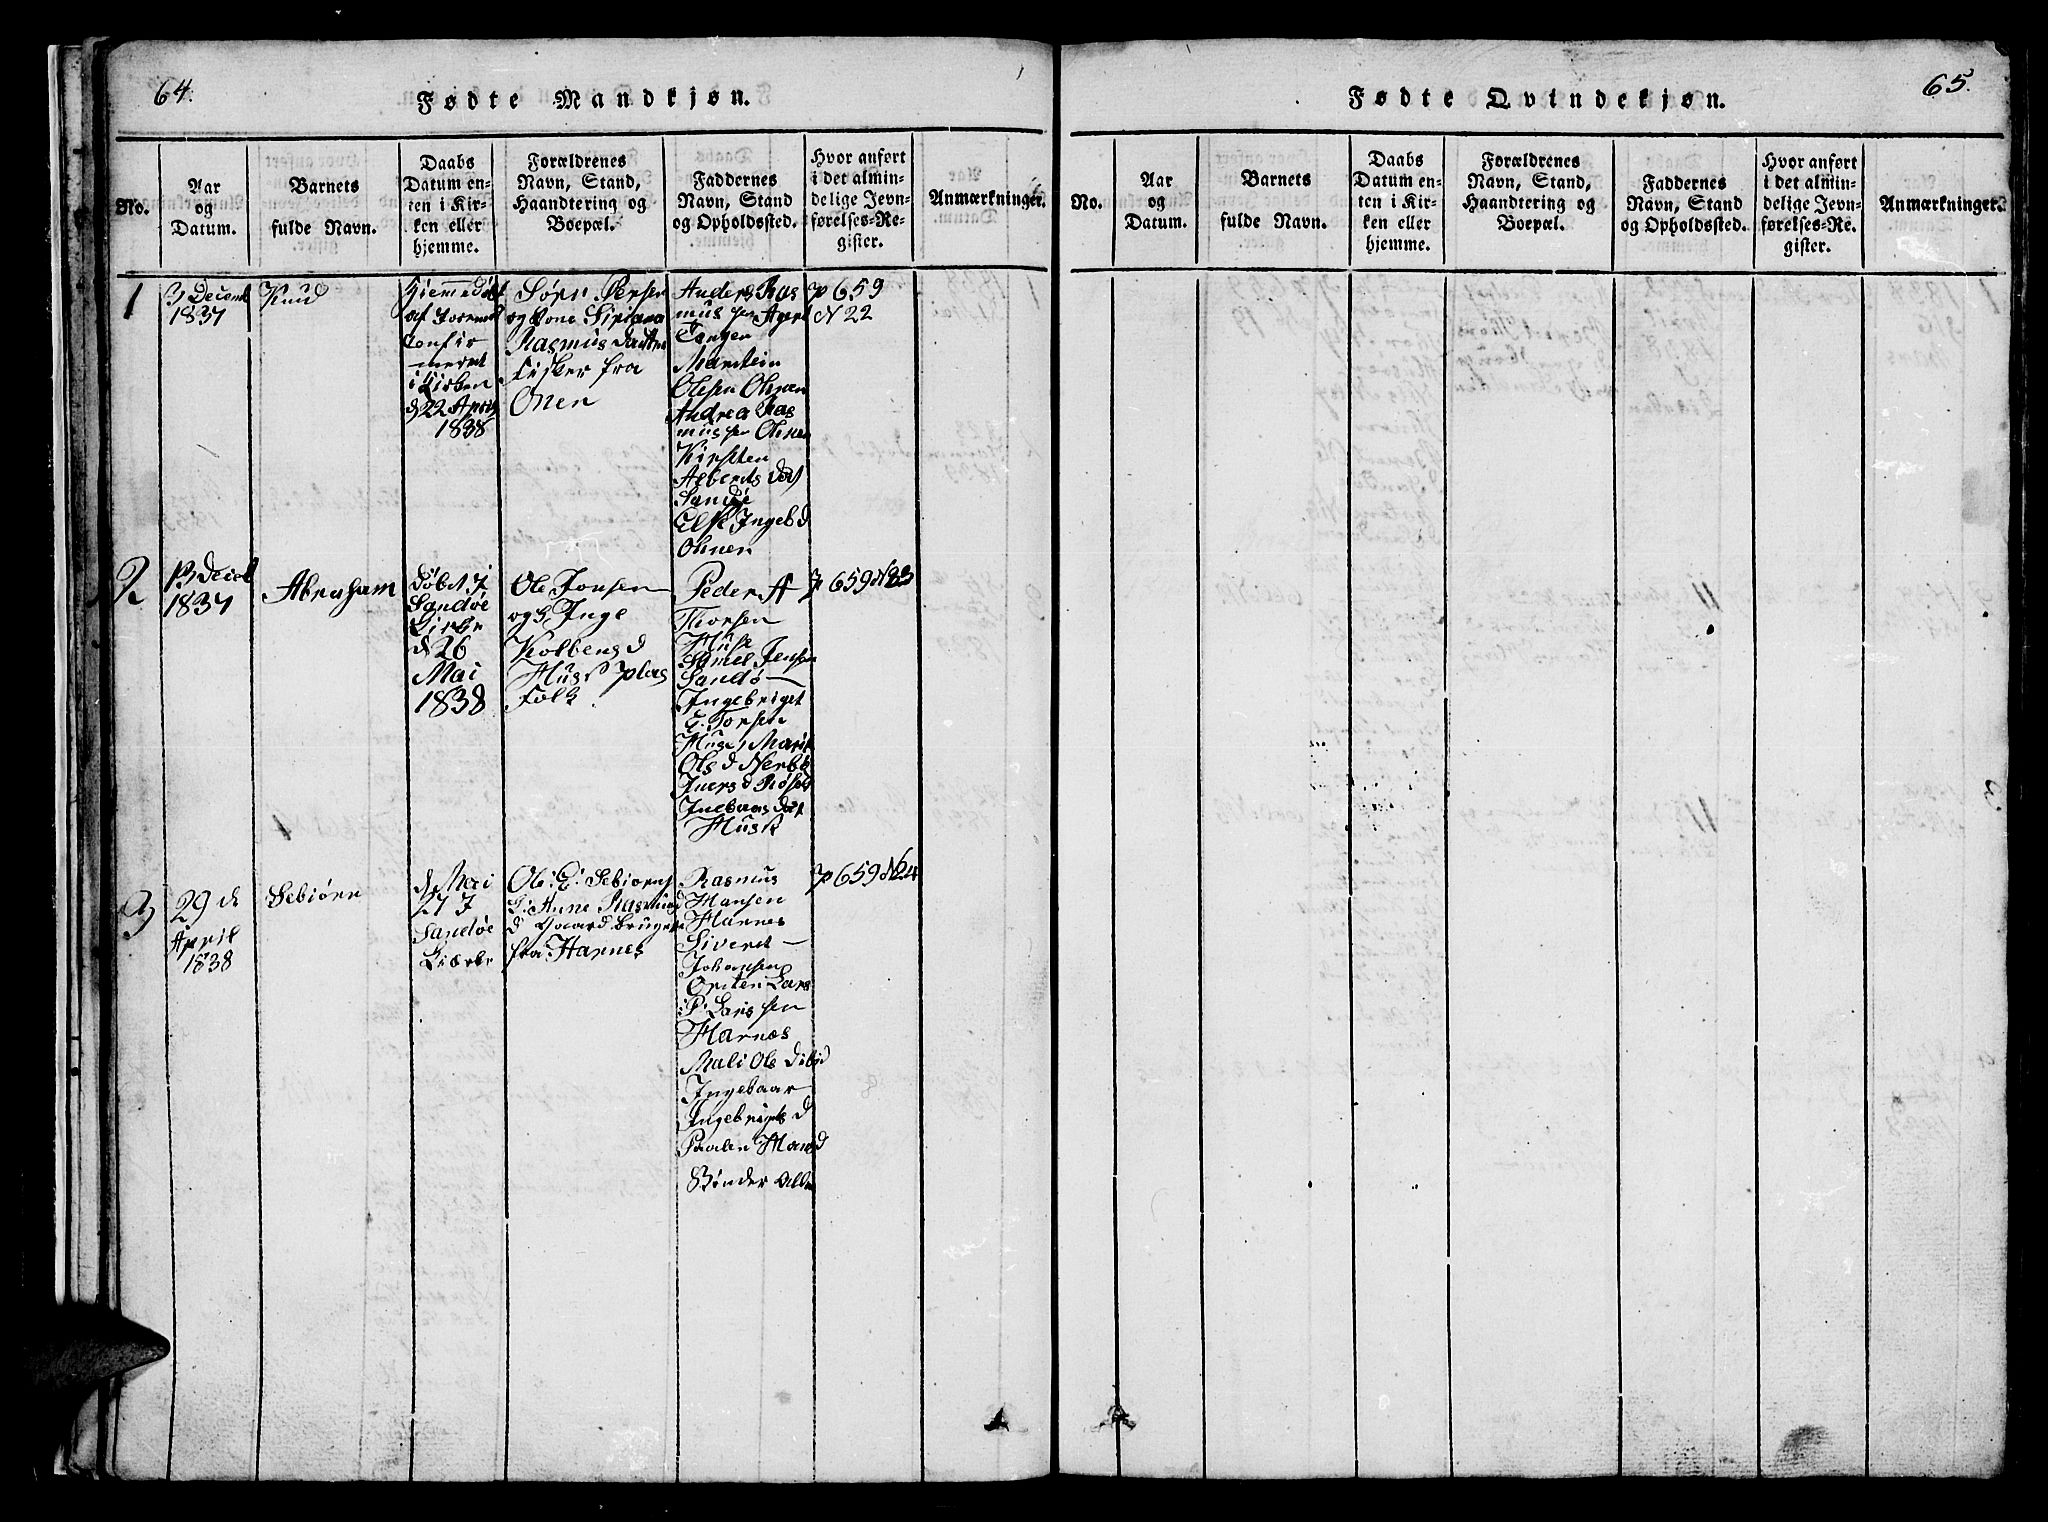 64.
Fødte Mandkjøn.
No.
Aar
og
Datum.
Barnets
fulde Navn.
Daabs
Datum en-
ten i Kir-
ken eller
hjemme.
Forældrenes
Navn, Stand,
Haandtering og
Boepæl.
Faddernes
Navn, Stand
og Opholdssted.
Hvor anført
i det almin-
delige Jevn-
førelses-Re-
gister.
Anmærkninger.
1
3 Decemb
1837
Knud
Hiemmedöbt
af
Confir
meret
i Kirken
d 22 April
1838
Sörn Persen
og Kone
Rasmus datter
Fisker fra
Onen
Anders Ras
mussen
Tangen
Marstein
Olesn Ohnen
Andrea Ras
mussen Ohnen
Kirsten
Alberts dat
Sandöe
Else Ingeb d
Ohnen
p 659
N 22
2
13 Deceb
1837
Abraham
döbet i
Sandöe
Kirke
d 26
Mai
1838
Ole Jonsen
og h Inge
Kolbens d
Huss plas
Folk
Peder A
Thorsen
Huse
Jensen
Sandö
Ingebriget
E. Torsen
Huse, Marit
Ols d Nerbö
Iuers d
Ingebaar dat
Husk
p 659 N 23
3
29 de
April
1838
Sebiörn
d Mai
27 I
Sandöe
Kierke
Ole E: Sebiörns
E: Anne Rasmus
d Gaard bruger
fra Harnes
Rasmus
Hansen
Harnes
Sivert
Johansen
Orsten Lars
P: Larssen
Harnæs
Mali Ole d
Ingebaar
Ingebrigts d
Hans d
Bönder Alle
p 659 N 24
65.
Fødte Qvindekjøn.
No.
Aar
og
Datum.
Barnets
fulde Navn.
Daabs
Datum en-
ten i Kir-
ken eller
hjemme.
Forældrenes
Navn, Stand,
Haandtering og
Boepæl.
Faddernes
Navn, Stand
og Opholdssted.
Hvor anført
i det almin-
delige Jevn-
førelses-Re.
gister.
Anmærkninger.